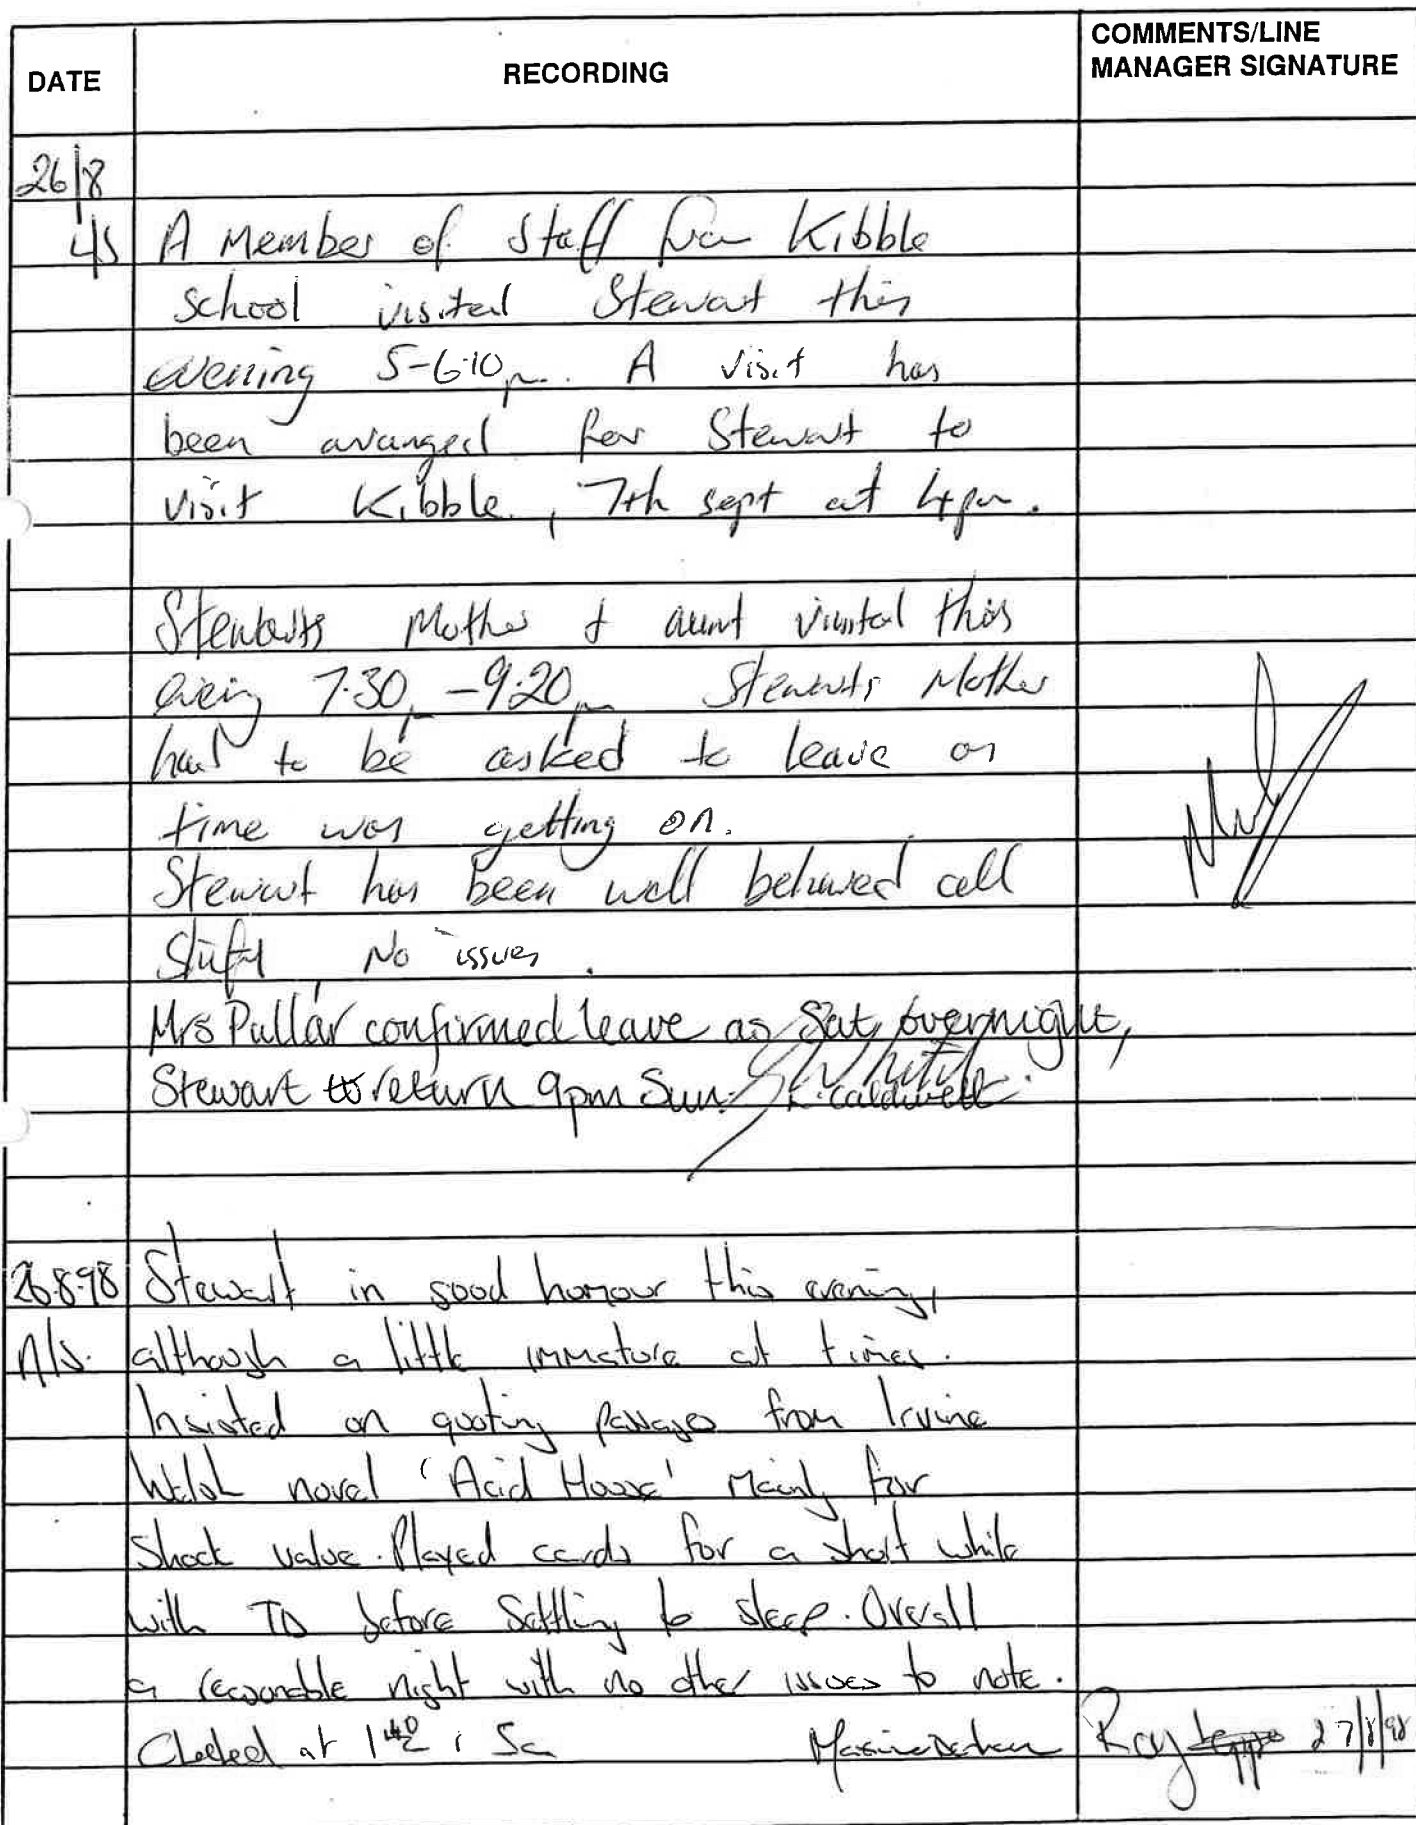 DATE RECORDING COMMENTS/LINE MANAGER SIGNATURE
26/8
A Member of Staff from Kibble
School visited Stewart this
evening 5-6.10pm. A visit has
been arranged for Stewart to
visit Kibble, 7th sept at 4pm.
Stewarts Mother & aunt visited this
evening 7.30pm-9.20pm Stewarts Mother
had to be asked to leave as
time was getting on.
Stewart has been well behaved all
shift No issues.
Mrs Pullar confirmed leave as Sat, overnight,
Stewart to return 9pm Sun. L. Caldwell
26.8.98 Stewart in good homour this evening,
N/S. although a little immature at times.
Insisted on quoting passages from Irvine
Welsh novel 'Acid House' Mainly for
Shock value. Played cards for a short while
with TD before settling to sleep. Overall
a reasonable night with no other issues to note.
Checked at 1 40 Roy 27/8/98